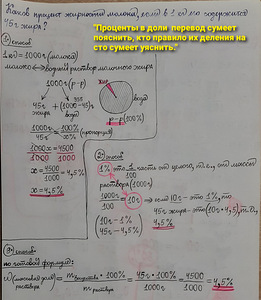 Каков процент жирности молока, если в 1 кг его содержится
45г жира?
"Проценты в доли перевод сумеет
пояснить, кто правило их деления на
сто сумеет уяснить."
1) способ
1кг = 1000г (молока)
молоко ↔ водный раствор молочного жира
1000г (р-р)
955
45г + (1000-45)г
жира воды
р-р (100%)
1000г — 100%
45г — x% (пропорция)
1000x = 4500
1000 1000
x = 4500
1000 = 4,5%
x = 4,5%
2) способ
1% это 1 часть от целого, т.е. от массы
раствора (1000г)
1000г
100 = 10г ⇒ если 10г – это 1%, то
45г жира – это (10г * 4,5), т.е.
4,5%
10г – 1%
45г – 4,5%
3) способ
по готовой формуле:
ω (массовая доля) = m вещества * 100% = 45г * 100% = 4500 = 4,5%
раствора m раствора 1000г 1000